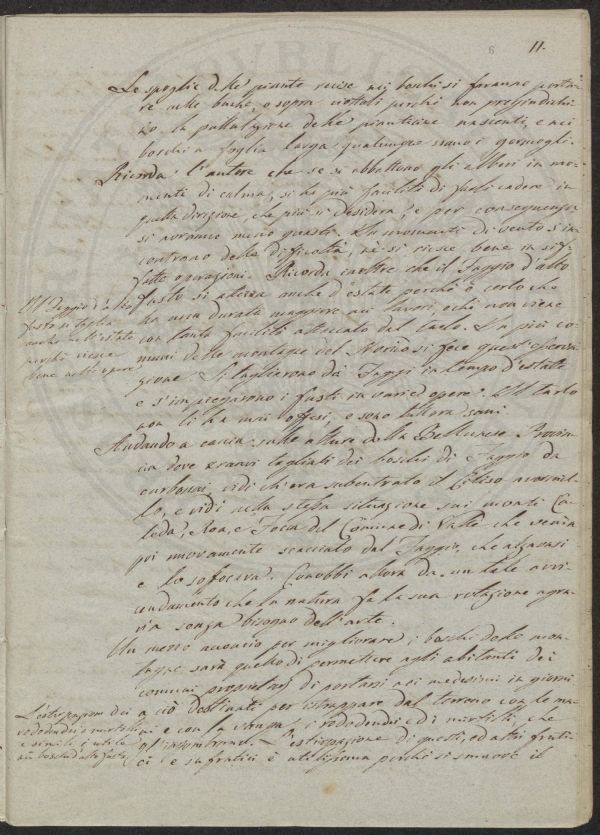 11.
Le spoglie delle piante recise nei boschi si faranno porta-
re nelle buche, o sopra viottali perchè non pregiudichi-
no la pullulazione delle pianticine nascenti, e nei
boschi a foglia larga qualunque siano i germogli.
Ricorda l'autore che se si abbattono gli alberi in mo-
menti di calma, si ha più facilità di farli cadere in
quella dirigione, che più si desidera, e per conseguenza
si avranno meno guasti. In momenti di vento s'in-
contrano delle difficoltà, nè si riesce bene in sif-
fatte operazioni. Ricorda inoltre che il Faggio d'alto
fusto si atterra anche d'estate perchè è certo che
ha una durata maggiore nei lavori, e chè non viene
con tanta facilità attaccato dal tarlo. In più co-
muni delle montagne del si fece quest'
gione. Si tagliarono dei Faggi in tempo d'estate
e s'impiegarono i fusti in varie opere. Il tarlo
non li ha mai offesi, e sono tuttora sani.
Il Faggio d'alto
fusto si taglia
anche nell'estate
perchè riesce
bene nelle opere
Andando a caccia sulle alture della Bellunese Provin-
cia dove eransi tagliati dei boschi di Faggio da
carbonai, vidi ch'era subentrato il
lo, e vidi nella stessa situazione sui monti
e del Comune di Valle che veniva
poi nuovamente scacciato dal Faggio, che alzavasi
e lo soffocava. Conobbi allora da un tale avvi-
cendamento che la natura fa la sua rotazione agra-
ria senza bisogno dell'arte.
Un mezzo per migliorare i boschi delle mon-
tagne sarà quello di permettere agli abitanti dei
comuni proprietarj di portarsi nei medesimi in giorni
a ciò destinati per istrappare dal terreno con le ma-
ni e con la zappa i rododendri e di mirtilli, che
l'ingombrano. L'estirpazione di questi, ed altri fruti-
ci e suffrutici è utilissima perchè si smuove il
L'estirpazione dei
rododendri, mirtilli
e simili è utile
nei boschi d'alto fusto